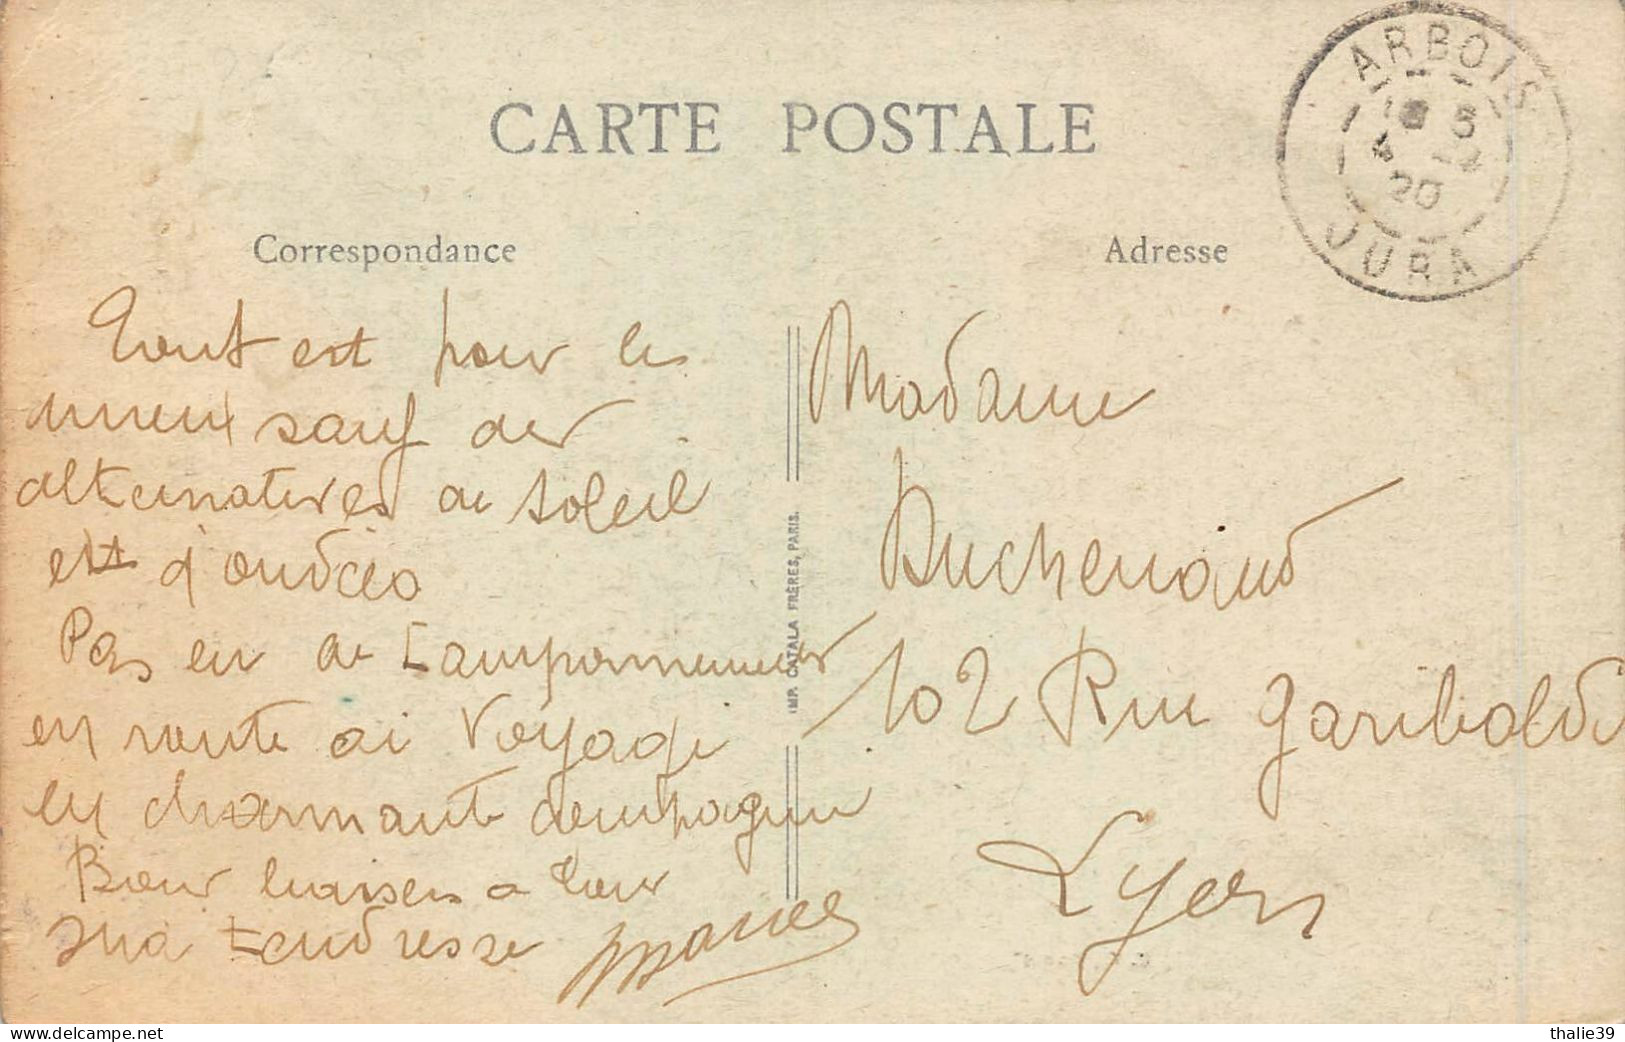 CARTE POSTALE
Correspondance
Adresse
ARBOIS
20
JURA
Tout est pour le
mieux sauf des
alternatives de soleil
et d'ondées
Pas eu de camponnement
en route ai voyagé
en charmante compagnie
Bons baisers à tous
ma tendresse Marcel
IMP. CATALA FRÈRES, PARIS.
Madame
Duchenaud
102 Rue Garibaldi
Lyon
thalie39